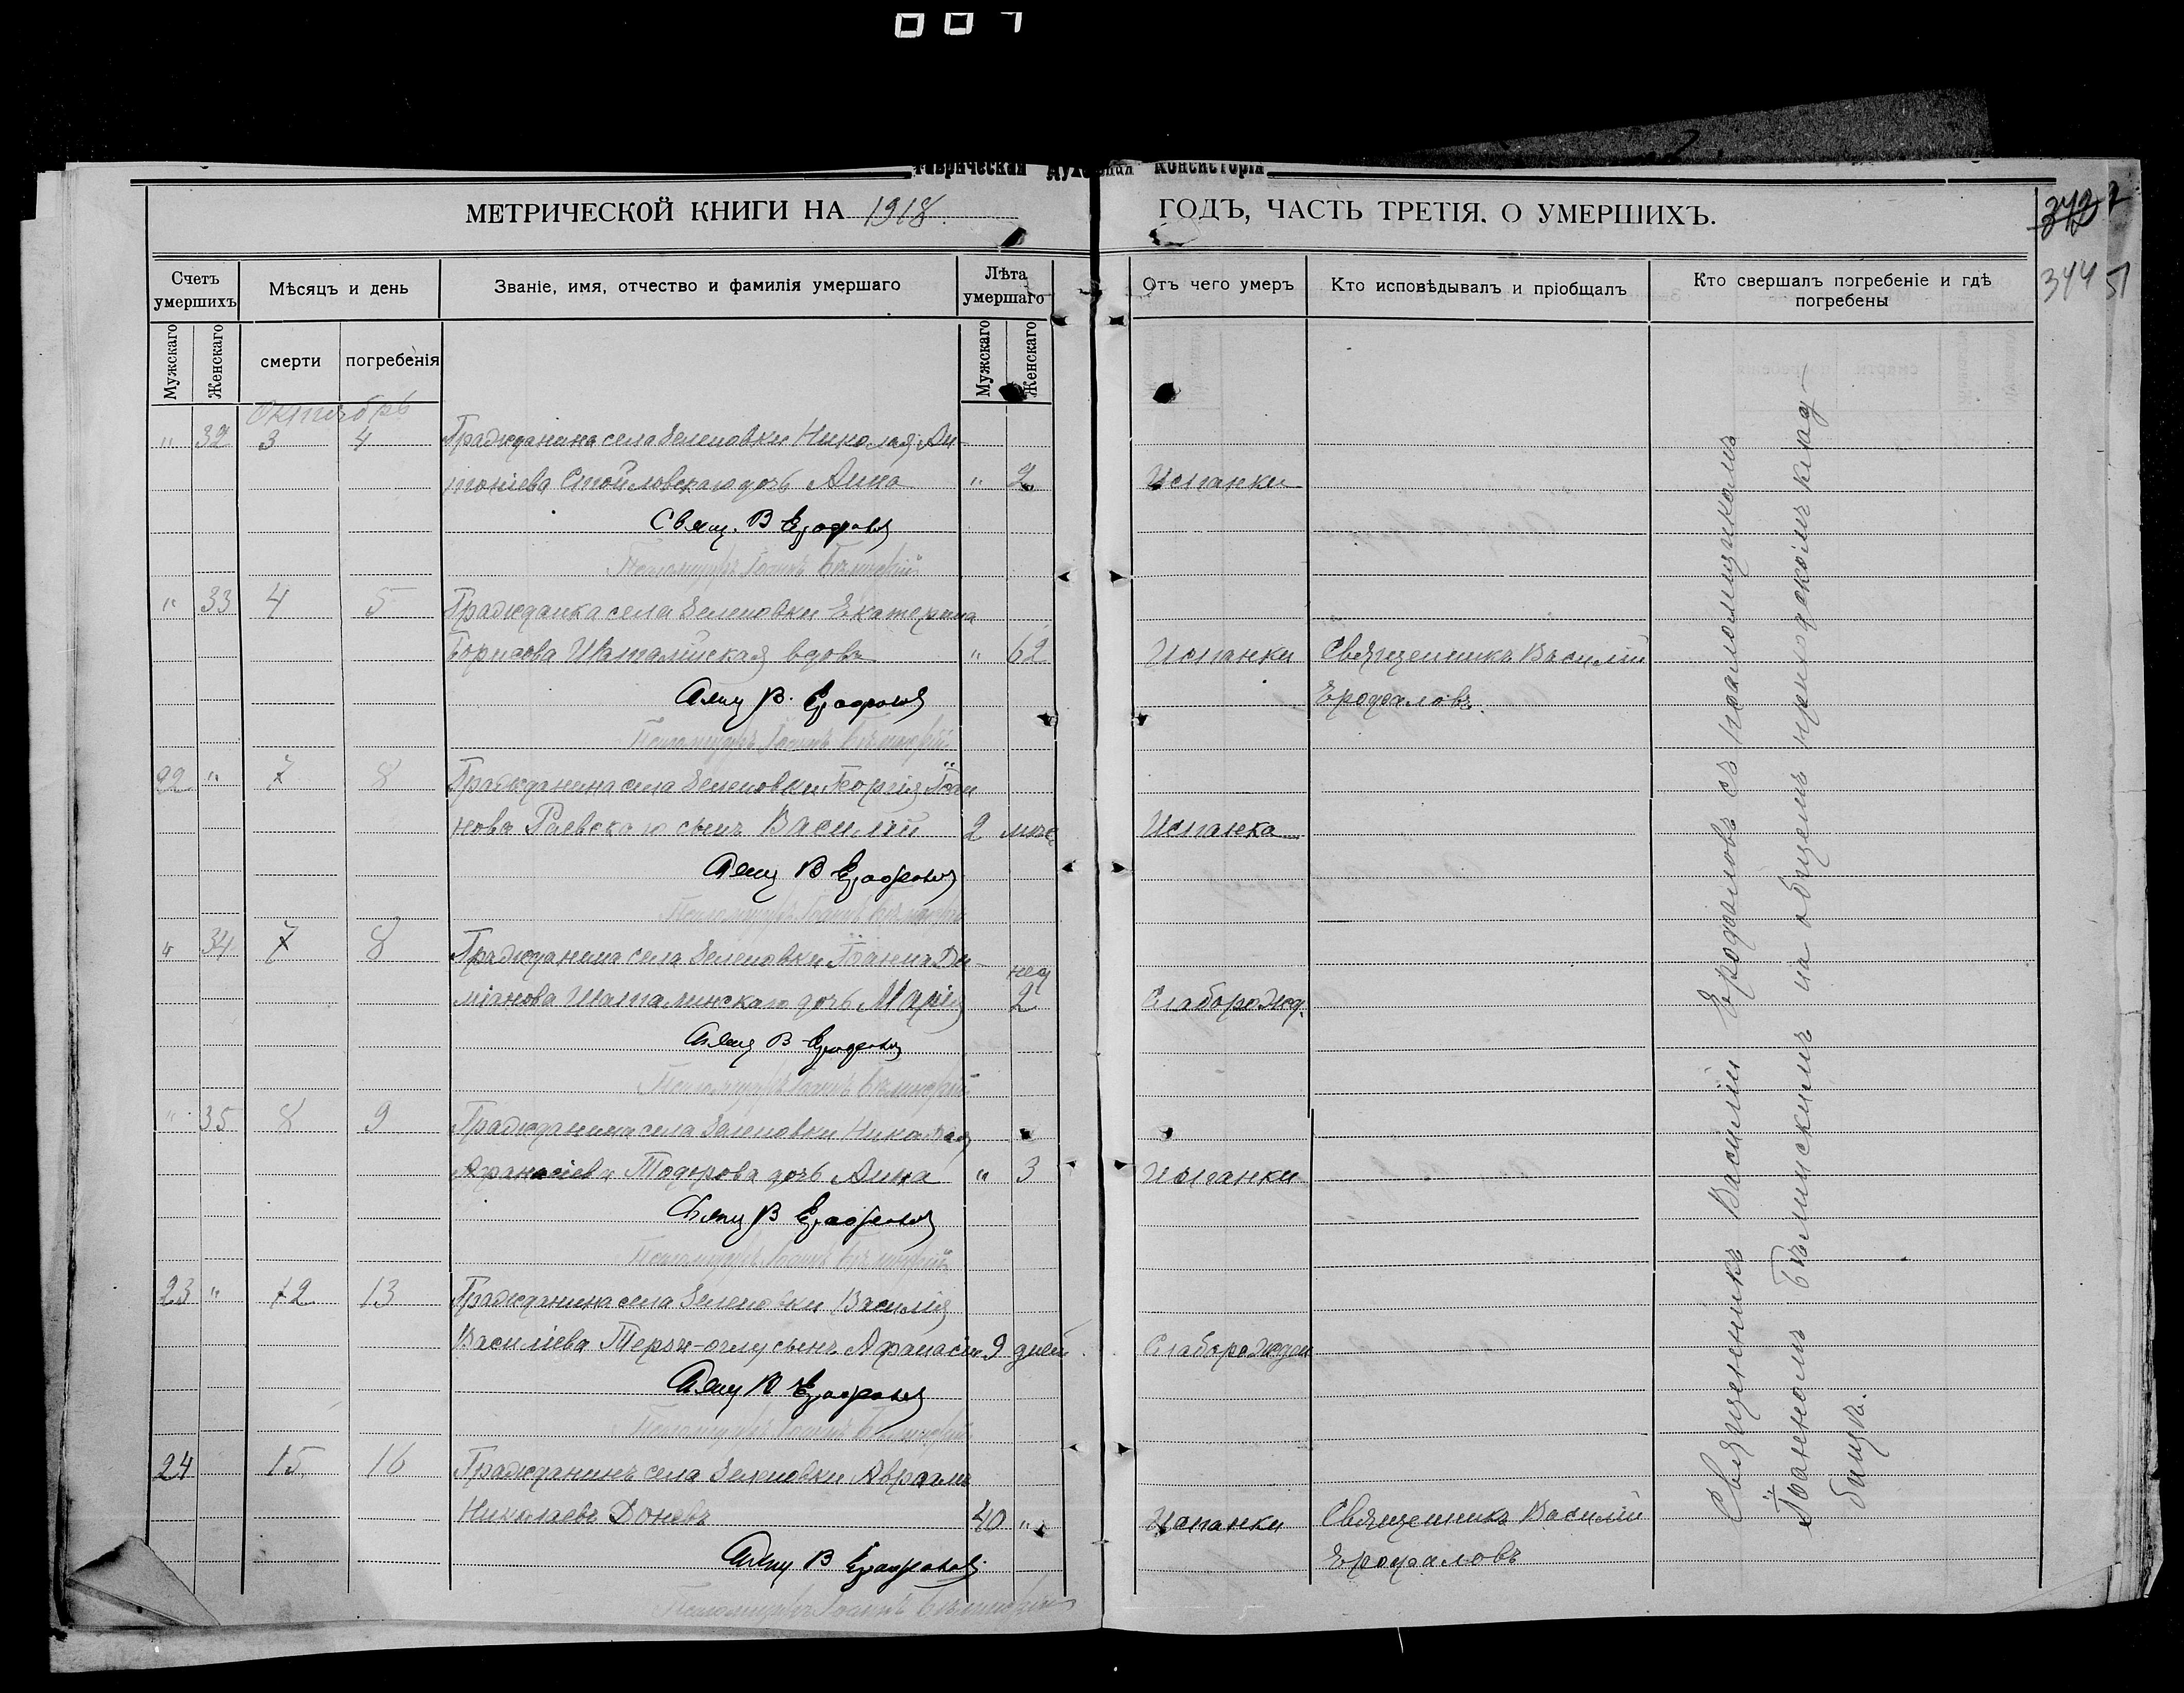 007
Таврическая Духовная Консисторія
МЕТРИЧЕСКОЙ КНИГИ НА 1918 ГОДЪ, ЧАСТЬ ТРЕТІЯ. О УМЕРШИХЪ.
342
344 51
Счетъ умершихъ
Мѣсяцъ и день
Званіе, имя, отчество и фамилія умершаго
Лѣта умершаго
Отъ чего умеръ
Кто исповѣдывалъ и пріобщалъ
Кто свершалъ погребеніе и гдѣ погребены
Мужскаго
Женскаго
смерти
погребенія
Мужскаго
Женскаго
Октябрь
" 32 3 4 Гражданина села Зеленовки Николая Ан-
тоніева Стойловскаго дочь Анна " 2 Испанки
Свящ. В Ерофаловъ
Псаломщикъ Іоаннъ Бѣлинскій
" 33 4 5 Гражданка села Зеленовки Екатерина
Борисова Шаталинская вдова " 62 Испанки Священникъ Василій
Свящ В. Ерофаловъ Ерофаловъ.
Псаломщикъ Іоаннъ Бѣлинскій
22 " 7 8 Гражданина села Зеленовки Георгія Іоан
нова Раевскаго сынъ Василій 2 мѣс Испанка
Свящ В Ерофаловъ
Псаломщикъ Іоаннъ Бѣлинскій
" 34 7 8 Гражданина села Зеленовки Іоанна Да-
міанова Шаталинскаго дочь Марія нед 2 Слаборожд.
Свящ В Ерофаловъ
Псаломщикъ Іоаннъ Бѣлинскій
" 35 8 9 Гражданина села Зеленовки Николая
Афанасіева Тодорова дочь Анна " 3 Испанки
Свящ В Ерофаловъ
Псаломщикъ Іоаннъ Бѣлинскій
23 " 12 13 Гражданина села Зеленовки Василія
Василіева Терзи-оглу сынъ Афанасій 9 дней Слаборожден
Свящ В Ерофаловъ
Псаломщикъ Іоаннъ Бѣлинскій
24 15 16 Гражданинъ села Зеленовки Авраамъ
Николаевъ Доневъ 40 " Испанки Священникъ Василій
Свящ В Ерофаловъ Ерофаловъ
Псаломщикъ Іоаннъ Бѣлинскій
Священникъ Василій Ерофаловъ съ псаломщикомъ
Іоанномъ Бѣлинскимъ на общемъ приходскомъ клад-
бищѣ.